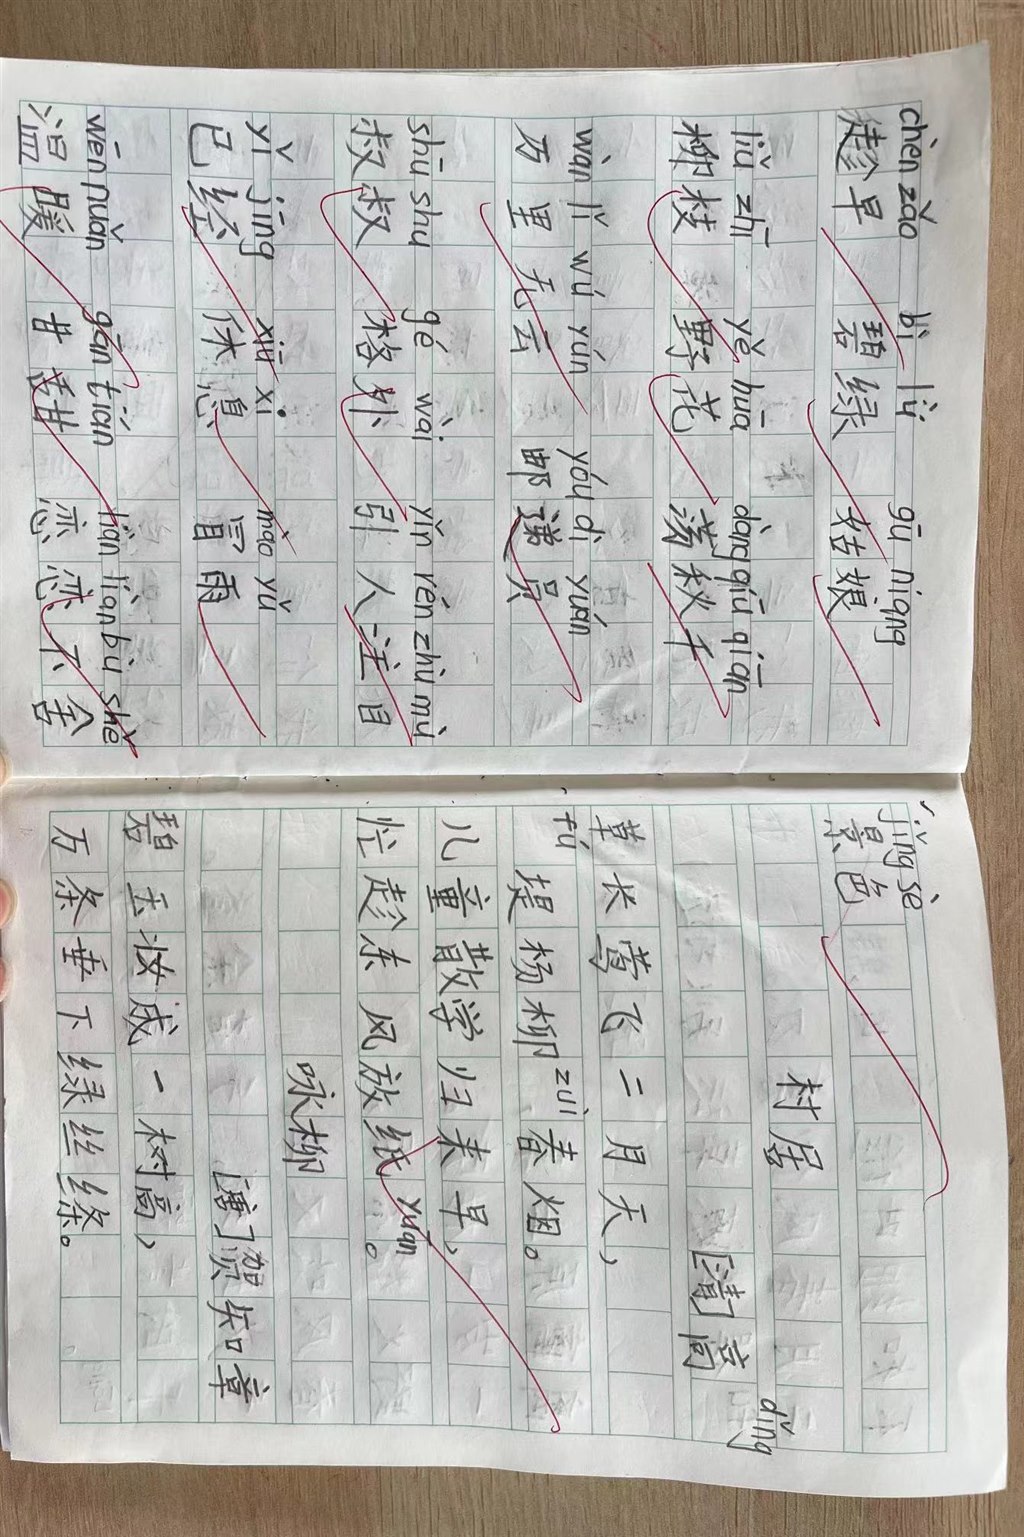 chèn zǎo bì lǜ gū niáng
趁早 碧绿 姑娘
liǔ zhī yě huā dàng qiū qiān
柳枝 野花 荡秋千
wàn lǐ wú yún yóu dì yuán
万里无云 邮递员
shū shu gé wài yǐn rén zhù mù
叔叔 格外 引人注目
yǐ jīng xiū xi mào yǔ
已经 休息 冒雨
wēn nuǎn gān tián liàn liàn bù shě
温暖 甘甜 恋恋不舍
jǐng sè
景色
村居
dǐng
[清]高
草长莺飞二月天,
fú 堤杨柳zuì春烟。
儿童散学归来早,
忙趁东风放纸yuān。
咏柳
[唐]贺知章
碧玉妆成一树高,
万条垂下绿丝绦。